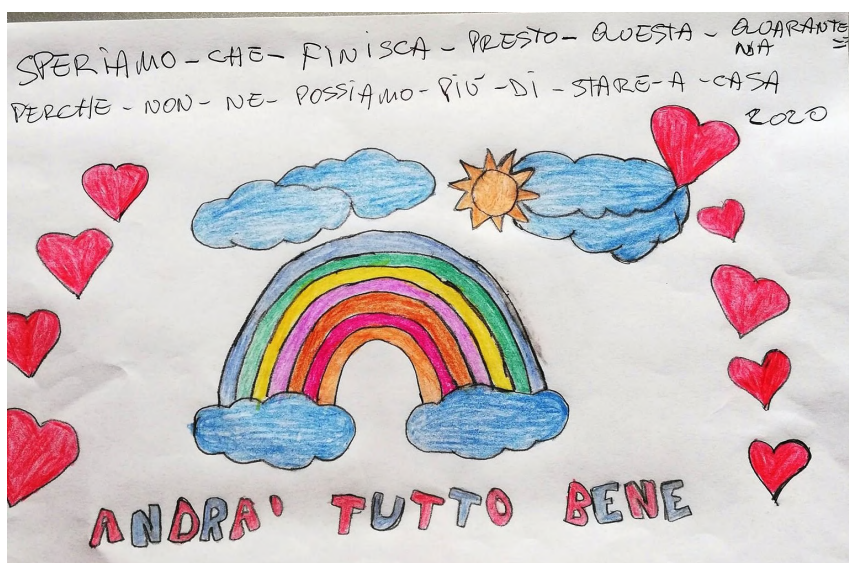 SPERIAMO-CHE-FINISCA-PRESTO-QUESTA-QUARANTE=
NA
PERCHE-NON-NE-POSSIAMO-PIÙ-DI-STARE-A-CASA
2020
ANDRA' TUTTO BENE